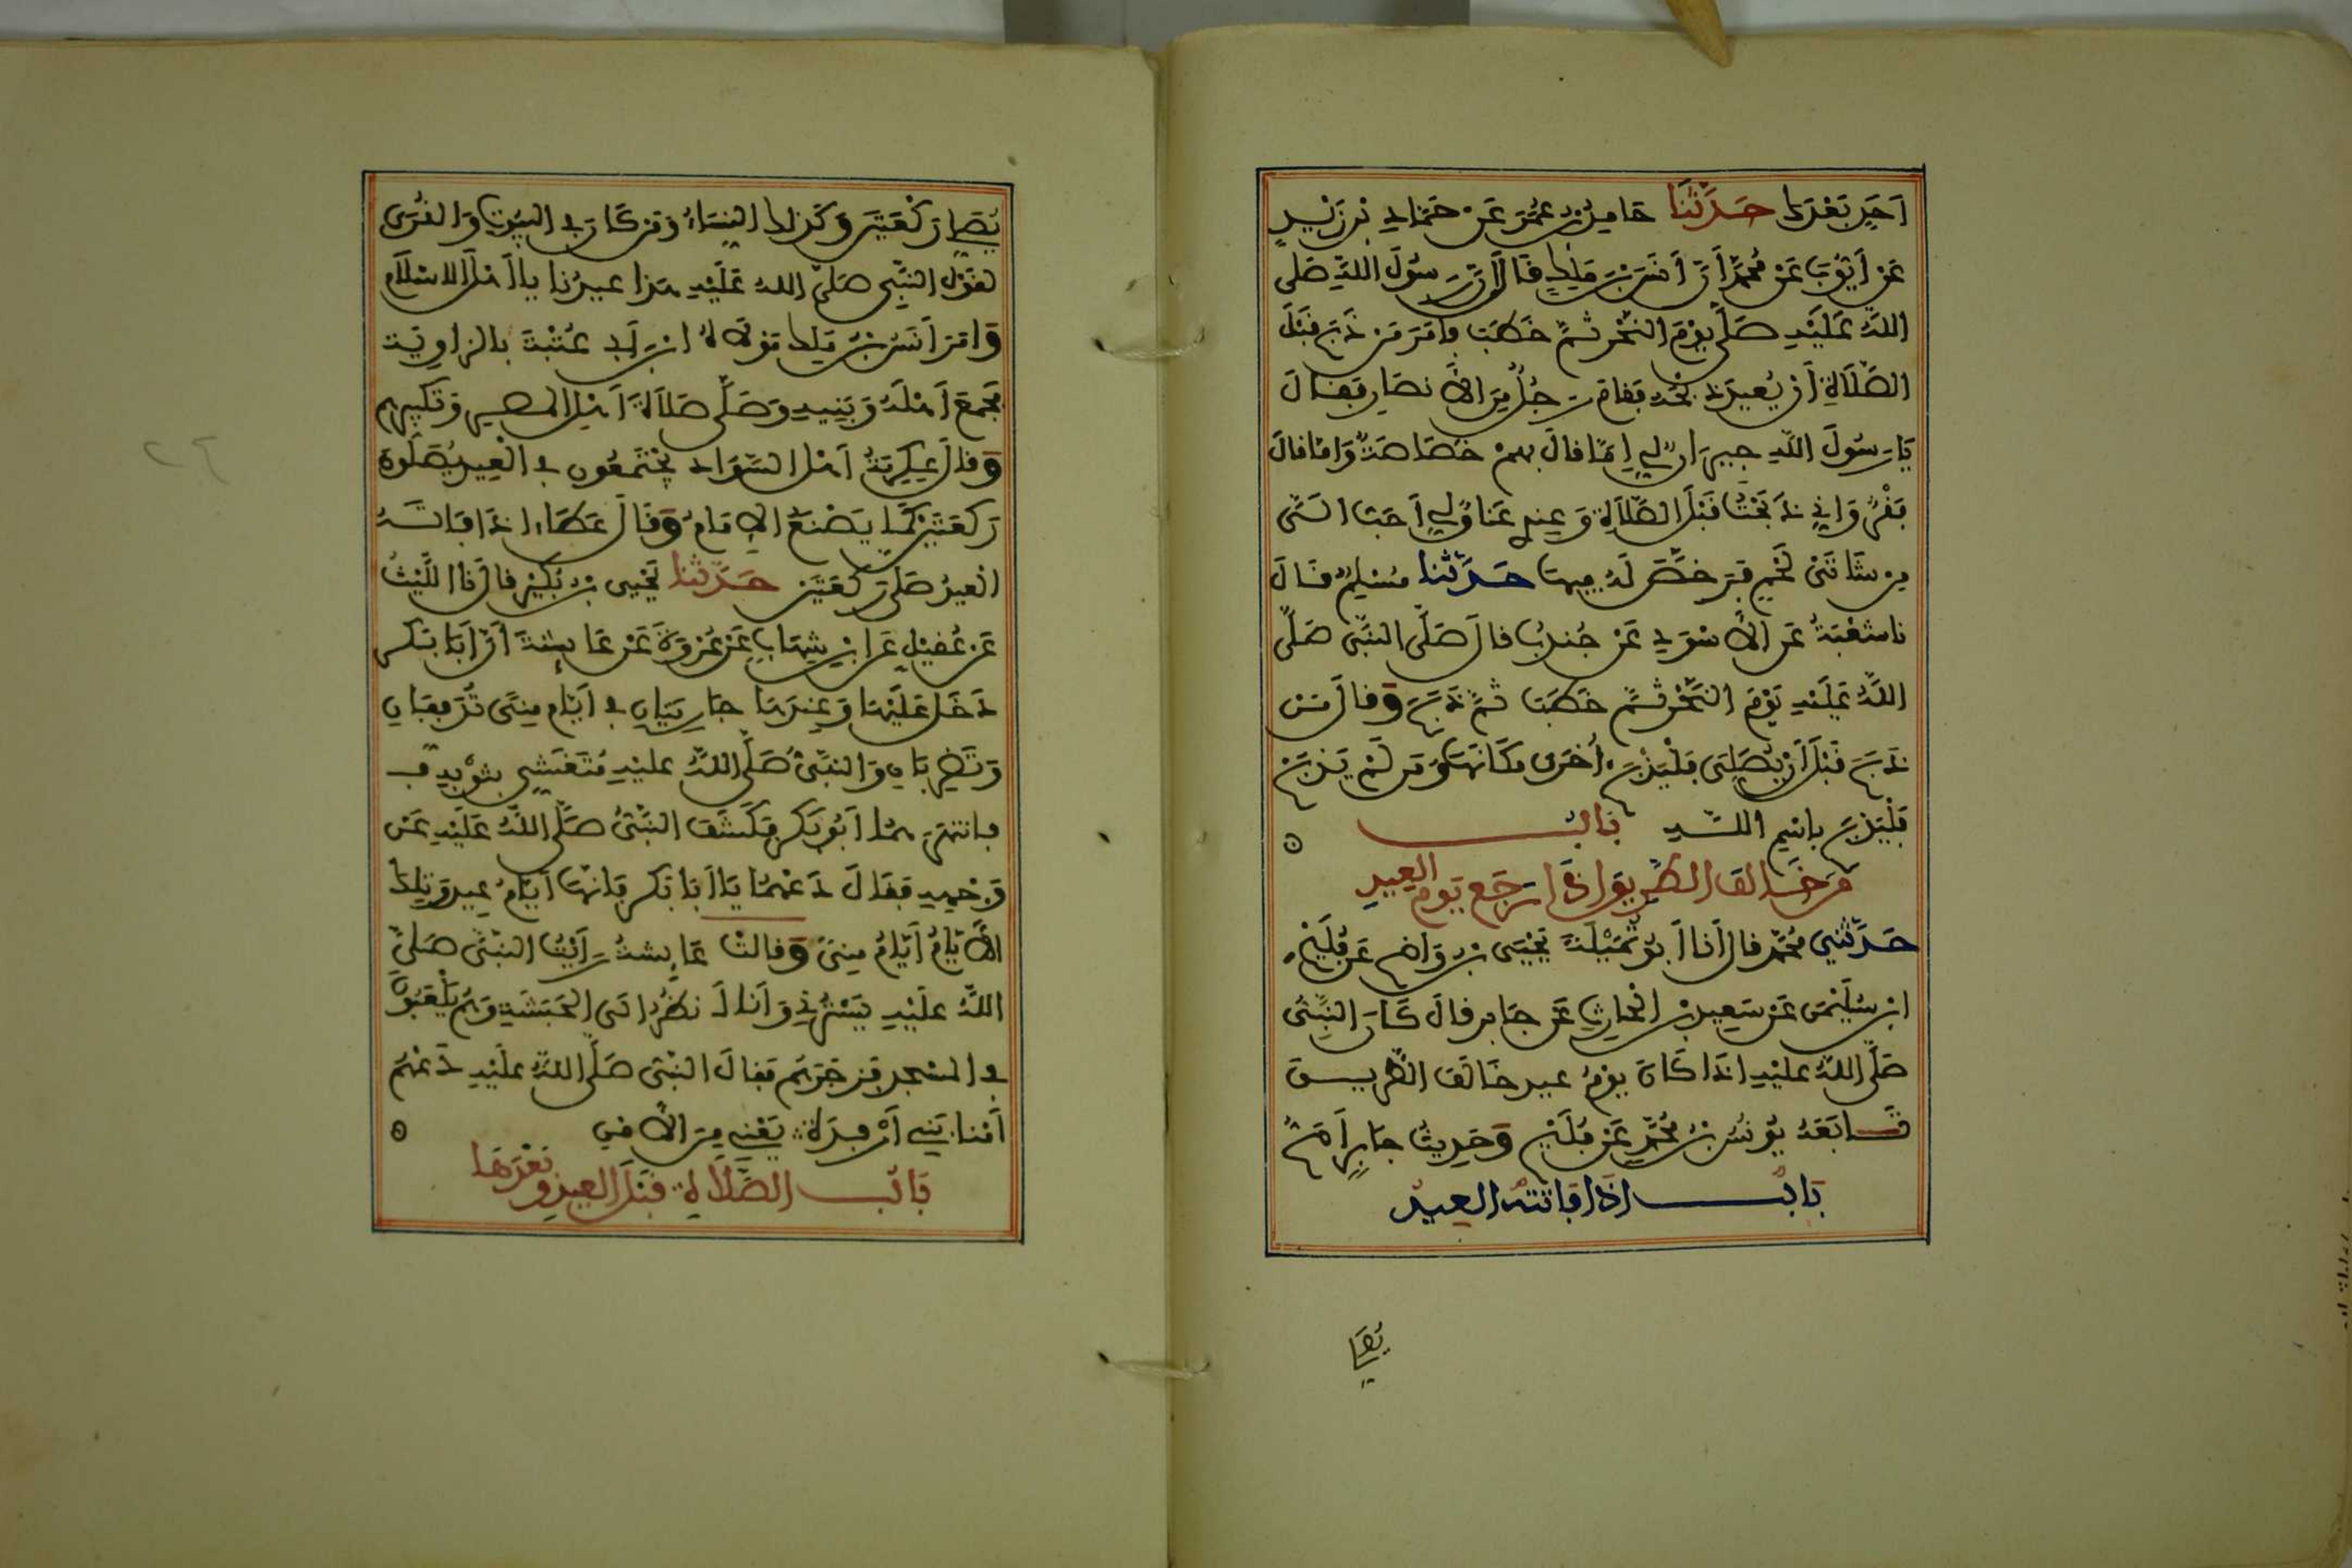 اَحَدٍ بَعْدَكَ حَدَّثَنَا حَامِدُ بْنُ عُمَرَ عَنْ حَمَّادِ بْنِ زَيْدٍ
عَنْ أَيُّوبَ عَنْ مُحَمَّدٍ أَنَّ أَنَسَ بْنَ مَٰلِكٍ قَالَ إِنَّ رَسُولَ اللَّهِ صَلَّى
اللَّهُ عَلَيْهِ صَلَّى يَوْمَ النَّحْرِ ثُمَّ خَطَبَ فَأَمَرَ مَنْ ذَبَحَ قَبْلَ
الصَّلَاةِ أَنْ يُعِيدَ ذَبْحَهُ فَقَامَ رَجُلٌ مِنَ الْأَنصَارِ فَقَالَ
يَا رَسُولَ اللَّهِ جِيرَانٌ لِي إِمَّا قَالَ بِهِمْ خَصَاصَةٌ وَإِمَّا قَالَ
فَقْرٌ وَإِنِّي ذَبَحْتُ قَبْلَ الصَّلَاةِ وَعِندِي عَنَاقٌ لِي أَحَبُّ إِلَيَّ
مِن شَاتَيْ لَحْمٍ فَرَخَّصَ لَهُ فِيهَا حَدَّثَنَا مُسْلِمٌ قَالَ
نا شُعْبَةُ عَنِ الْأَسْوَدِ عَنْ جُندُبٍ قَالَ صَلَّى النَّبِيُّ صَلَّى
اللَّهُ عَلَيْهِ يَوْمَ النَّحْرِ ثُمَّ خَطَبَ ثُمَّ ذَبَحَ وَقَالَ مَنْ
ذَبَحَ قَبْلَ أَنْ يُصَلِّيَ فَلْيَذْبَحْ أُخْرَى مَكَانَهَا وَمَن لَمْ يَذْبَحْ
فَلْيَذْبَحْ بِاسْمِ اللَّهِ بَابُ
مَنْ خَالَفَ الطَّرِيقَ إِذَا رَجَعَ يَوْمَ الْعِيدِ
حَدَّثَنِي مُحَمَّدٌ قَالَ أَنَا أَبُو تُمَيْلَةَ يَحْيَى بْنُ وَاضِحٍ عَنْ فُلَيْحِ
ابْنِ سُلَيْمٰنَ عَنْ سَعِيدِ بْنِ الْحَارِثِ عَنْ جَابِرٍ قَالَ كَانَ النَّبِيُّ
صَلَّى اللَّهُ عَلَيْهِ إِذَا كَانَ يَوْمُ عِيدٍ خَالَفَ الطَّرِيقَ
تَابَعَهُ يُونُسُ بْنُ مُحَمَّدٍ عَنْ فُلَيْحٍ وَحَدِيثُ جَابِرٍ أَصَحُّ
بَابُ إِذَا فَاتَتْهُ الْعِيدُ
يُصَلِّي
يُصَلِّي رَكْعَتَيْنِ وَكَذَلِكَ النِّسَاءُ وَمَن كَانَ فِي الْبُيُوتِ وَالْقُرَى
لِقَوْلِ النَّبِيِّ صَلَّى اللَّهُ عَلَيْهِ هَذَا عِيدُنَا يَا أَهْلَ الْإِسْلَامِ
وَأَمَرَ أَنَسُ بْنُ مَٰلِكٍ مَوْلَاهُ ابْنَ أَبِي عُتْبَةَ بِالزَّاوِيَةِ
فَجَمَعَ أَهْلَهُ وَبَنِيهِ وَصَلَّى صَلَاةَ أَهْلِ الْمِصْرِ وَتَكْبِيرِهِمْ
وَقَالَ عِكْرِمَةُ أَهْلُ السَّوَادِ يَجْتَمِعُونَ فِي الْعِيدِ يُصَلُّونَ
رَكْعَتَيْنِ كَمَا يَصْنَعُ الْإِمَامُ وَقَالَ عَطَاءٌ إِذَا فَاتَهُ
الْعِيدُ صَلَّى رَكْعَتَيْنِ حَدَّثَنَا يَحْيَى بْنُ بُكَيْرٍ قَالَ نَا اللَّيْثُ
عَنْ عُقَيْلٍ عَنِ ابْنِ شِهَابٍ عَنْ عُرْوَةَ عَنْ عَائِشَةَ أَنَّ أَبَا بَكْرٍ
دَخَلَ عَلَيْهَا وَعِندَهَا جَارِيَتَانِ فِي أَيَّامِ مِنًى تُدَفِّفَانِ
وَتَضْرِبَانِ وَالنَّبِيُّ صَلَّى اللَّهُ عَلَيْهِ مُتَغَشٍّ بِثَوْبِهِ
فَانتَهَرَهُمَا أَبُو بَكْرٍ فَكَشَفَ النَّبِيُّ صَلَّى اللَّهُ عَلَيْهِ عَن
وَجْهِهِ فَقَالَ دَعْهُمَا يَا أَبَا بَكْرٍ فَإِنَّهَا أَيَّامُ عِيدٍ وَتِلْكَ
الْأَيَّامُ أَيَّامُ مِنًى وَقَالَتْ عَائِشَةُ رَأَيْتُ النَّبِيَّ صَلَّى
اللَّهُ عَلَيْهِ يَسْتُرُنِي وَأَنَا أَنظُرُ إِلَى الْحَبَشَةِ وَهُمْ يَلْعَبُونَ
فِي الْمَسْجِدِ فَزَجَرَهُمْ فَقَالَ النَّبِيُّ صَلَّى اللَّهُ عَلَيْهِ دَعْهُمْ
أَمْنًا بَنِي أَرْفِدَةَ يَعْنِي مِنَ الْأَمْنِ
بَابُ الصَّلَاةِ قَبْلَ الْعِيدِ وَبَعْدَهَا